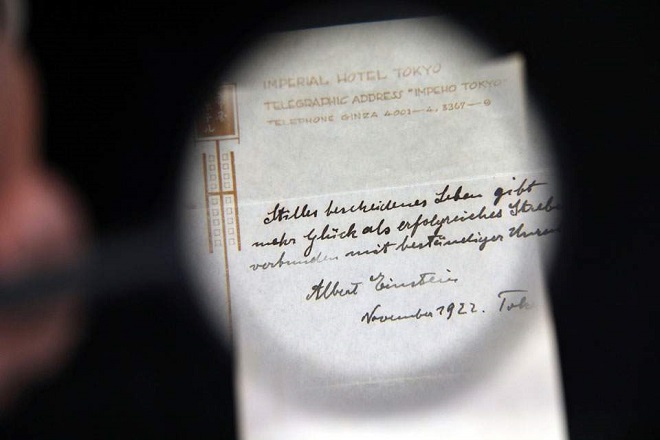 IMPERIAL HOTEL TOKYO
TELEGRAPHIC ADDRESS "IMPEHO TOKYO"
TELEPHONE GINZA 4001—4, 3367—9
Stilles bescheidenes Leben gibt
mehr Glück als erfolgreiches Streb
verbunden mit beständiger Unru
Albert Einstein
November 1922. Tok